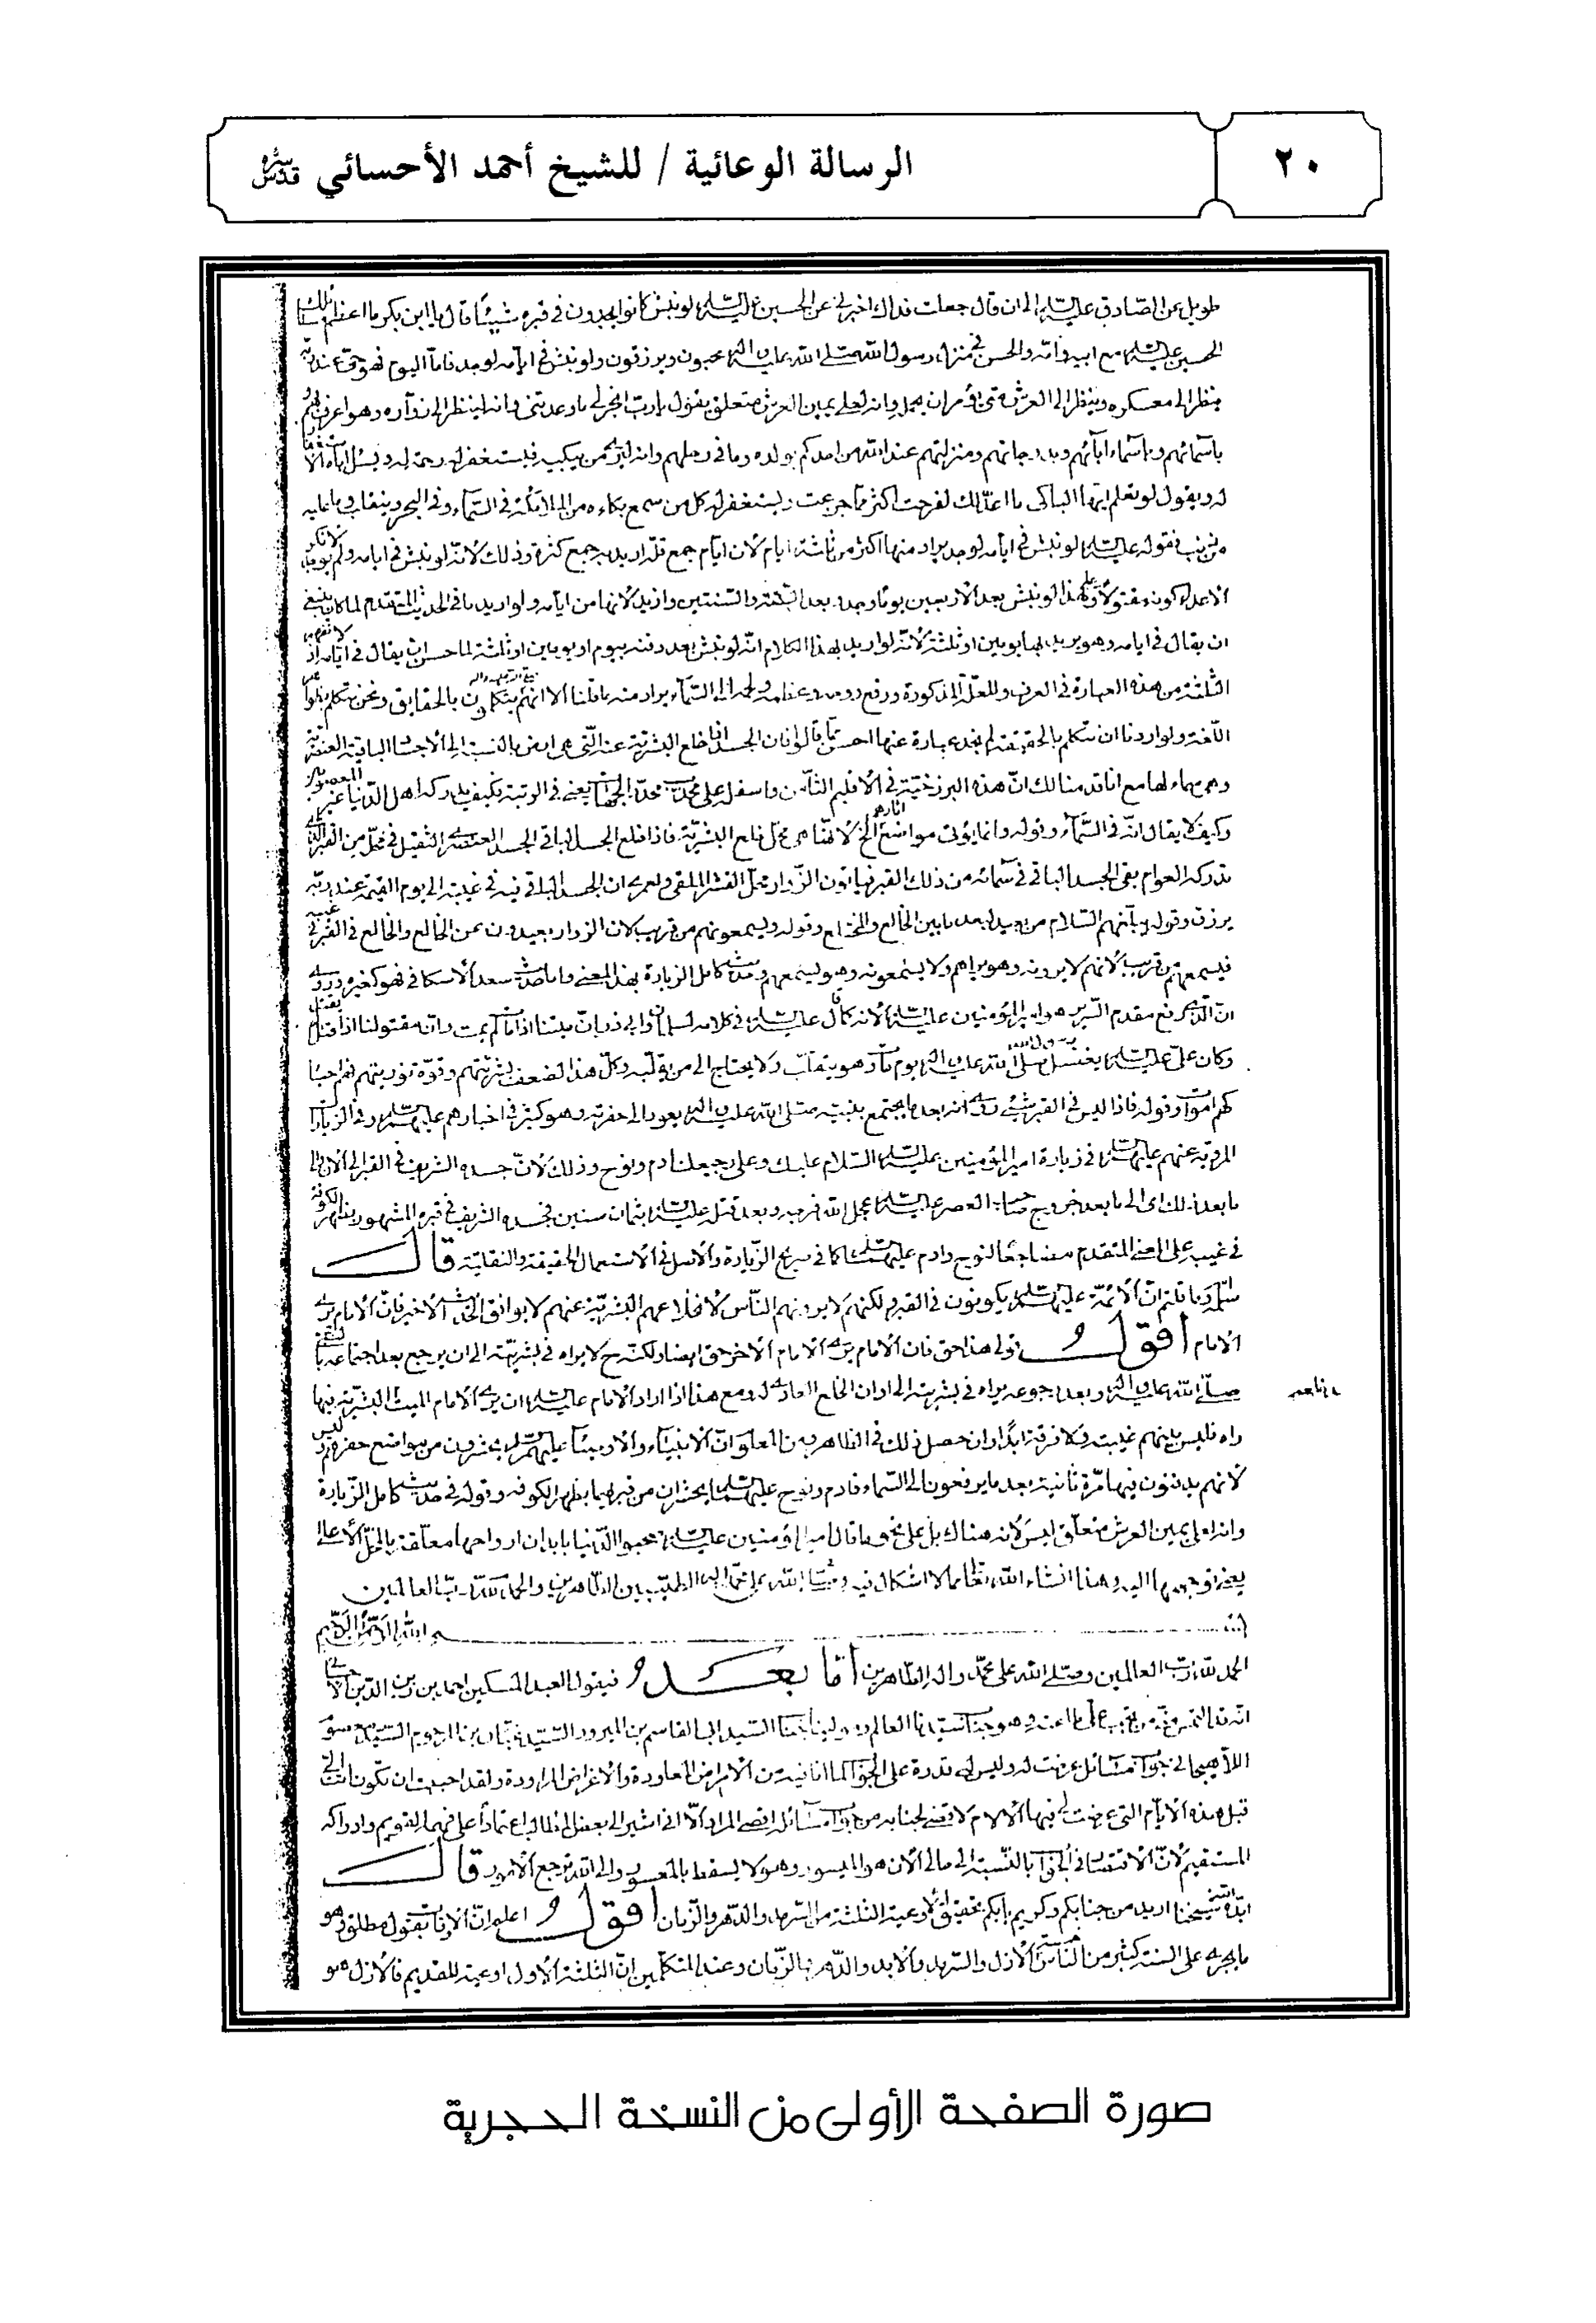 ٢٠
الرسالة الوعائية / للشيخ أحمد الأحسائي قدس سره
طويل عن الصادق عليه السلام الى ان قال جعلت فداك اخبرنى عن الحسين عليه السلام لو نبش كانوا يجدون فى قبره شيئا قال يا ابن بكر ما اعظم مسائلك
الحسين عليه السلام مع ابيه وامه والحسن فى منزل رسول الله صلى الله عليه واله يحبون ويرزقون ولو نبش فى ايامه لوجد فاما اليوم فهو حى عند ربه
ينظر الى معسكره وينظر الى العرش متى يؤمر ان يحمله وانه لعلى يمين العرش متعلق يقول يا رب انجز لى ما وعدتنى وانه لينظر الى زواره وهو اعرف بهم
باسمائهم وباسماء ابائهم وبدرجاتهم ومنزلتهم عند الله من احدكم بولده وما فى رحلهم وانه ليرى من يبكيه فيستغفر له رحمة له ويسئل اباه الاستغفار
له ويقول لو تعلم ايها الباكى ما اعد لك لفرحت اكثر مما جزعت ويستغفر له كل من سمع بكاءه من الملائكة فى السماء وفى الحير وينقلب وما عليه
من ذنب فقوله عليه السلام لو نبش فى ايامه لوجد يراد منها اكثر من ثلثة ايام لان ايام جمع قلة اريد به جمع كثرة وذلك لانه لو نبش فى ايامه
ان يقال فى ايامه وهو يريد بها يومين او ثلثة لانه لو اريد بهذا الكلام انه لو نبش بعد دفنه بيوم او يومين او ثلثة لما حسن ان يقال فى ايامه
الثلثة من هذه العبارة فى العرف وللعلة المذكورة ورفع روحه وعظمه ولحمه الى السماء يراد منه ما قلنا الا انهم يتكلمون بالحقايق ونحن نتكلم
اللغة ولو اردنا ان نتكلم بالحقيقة لم نجد عبارة عنها احسن مما قالوا فان الجسد اذا خلع البشرية
وكيف لا يقال انه فى السماء وقوله وانما يؤتى مواضع اثارهم الخ لانها هى محل خلع البشرية فاذا خلع الجسد الباقى الجسد العنصرى الثقيل فى محل من القبر
تدركه العوام بقى الجسد الباقى فى سمائه من ذلك القبر فيأتون الزوار محل القشر الملقى ولعمرى ان الجسد الباقى فيه فى غيبته الى يوم القيمة عند ربه
يرزق وقوله يبلغهم السلام من بعيد لبعد ما بين الخالع والمختلع وقوله ويسمعونهم من قريب لان الزوار بعيدون عن الخالع والخالع فى القبر
فيسمعهم من قريب لانهم لا يرونه وهو يراهم ولا يسمعونه وهو يسمعهم وحديث كامل الزيارة بهذا المعنى واما حديث سعد الاسكاف فهو كغيره
ان الذى رفع مقدم السرير هو امير المؤمنين عليه السلام لانه كما قال عليه السلام فى كلامه لسلمان وابى ذر بان ميتنا اذا مات لم يمت وان مقتولنا اذا قتل لم يقتل
وكان على عليه السلام يغسل رسول الله صلى الله عليه واله يوم مات وهو يتقلب ولا يحتاج الى من يقلبه وكل هذا لضعف بشريتهم وقوة نوريتهم فهم احياء
كهم امواتا وقوله فاذا ليس فى القبر شىء
المروية عنهم عليهم السلام فى زيارة امير المؤمنين عليه السلام السلام عليك وعلى ضجيعيك ادم ونوح وذلك لان جسده الشريف فى القبر الى الان الى
ما بعد ذلك اى الى ما بعد خروج صاحب العصر عليه السلام عجل الله فرجه وبعد قتله عليه السلام بثمان سنين فجسده الشريف فى قبره المشهور بظهر الكوفة
فى غيب على المعنى المتقدم مضاجعا لنوح وادم عليهما السلام كما فى صريح الزيارة والاصل فى الاستعمال الحقيقة والنقلية قال
سلمه وما قلتم ان الائمة عليهم السلام يكونون فى القبر ولكنهم لا يرونهم الناس لاختلاعهم البشرية عنهم لا يوافق الحديث الاخير فان الامام يرى
الامام اقول قوله هذا حق فان الامام يرى الامام الاخر حق ايضا ولكنه ح لا يراه فى بشريته الى ان يرجع بعد اجتماعه
صلى الله عليه واله وبعد رجوعه يراه فى بشريته الى اوان الخلع العادى له ومع هذا اذا اراد الامام عليه السلام ان يرى الامام الميت البشرية فيها
راه فليس بينهم غيبة ولا فرقة ابدا وان حصل ذلك فى الظاهر ومن المعلوم ان الانبياء والاوصياء عليهم السلام يحشرون من مواضع حفرهم
لانهم يدفنون فيها مرة ثانية بعد ما يرفعون الى السماء فادم ونوح عليهما السلام يحشران من قبريهما بظهر الكوفة وقوله فى حديث كامل الزيارة
وانه لعلى يمين العرش متعلق ليس لانه هناك بل على نحو ما قال امير المؤمنين عليه السلام صحبوا الدنيا بابدان ارواحها معلقة بالمحل الاعلى
يعنى توجهها اليه وهذا انشاء الله تعالى مما لا اشكال فيه وصلى الله على محمد واله الطيبين الطاهرين والحمد لله رب العالمين
بسم الله الرحمن الرحيم
الحمد لله رب العالمين وصلى الله على محمد واله الطاهرين اما بعد فيقول العبد المسكين احمد بن زين الدين الاحسائى
انه قد التمس منى من تجب على طاعته وهو جناب سيدنا العالم السيد ابى القاسم بن المبرور السيد عباس بن المرحوم السيد
اللاهيجانى جواب مسائل عرضت له وليس لى قدرة على الجواب لما انا فيه من الامراض المعاودة والاعراض المراودة ولقد احببت ان تكون اتت الى
قبل هذه الايام التى عرضت لى فيها الالام لاقضى لجنابه من جواب مسائله اقصى المراد الا انى اشير الى بعض المطالب اعتمادا على فهمه القويم وادراكه
المستقيم لان الاقتصار فى الجواب بالنسبة الى حالى الان هو الميسور وهو لا يسقط بالمعسور والى الله ترجع الامور قال
ايده الله شيخنا اريد من جنابكم وكريم بابكم تحقيق الاوعية الثلثة من السرمد والدهر والزمان اقول اعلم ان الاوقات بقول مطلق هو
ما يجرى على السنة كثير من الناس الازل والسرمد والابد والدهر والزمان وعند المتكلمين ان الثلثة الاول اوعية للقديم فالازل هو
صورة الصفحة الأولى من النسخة الحجرية